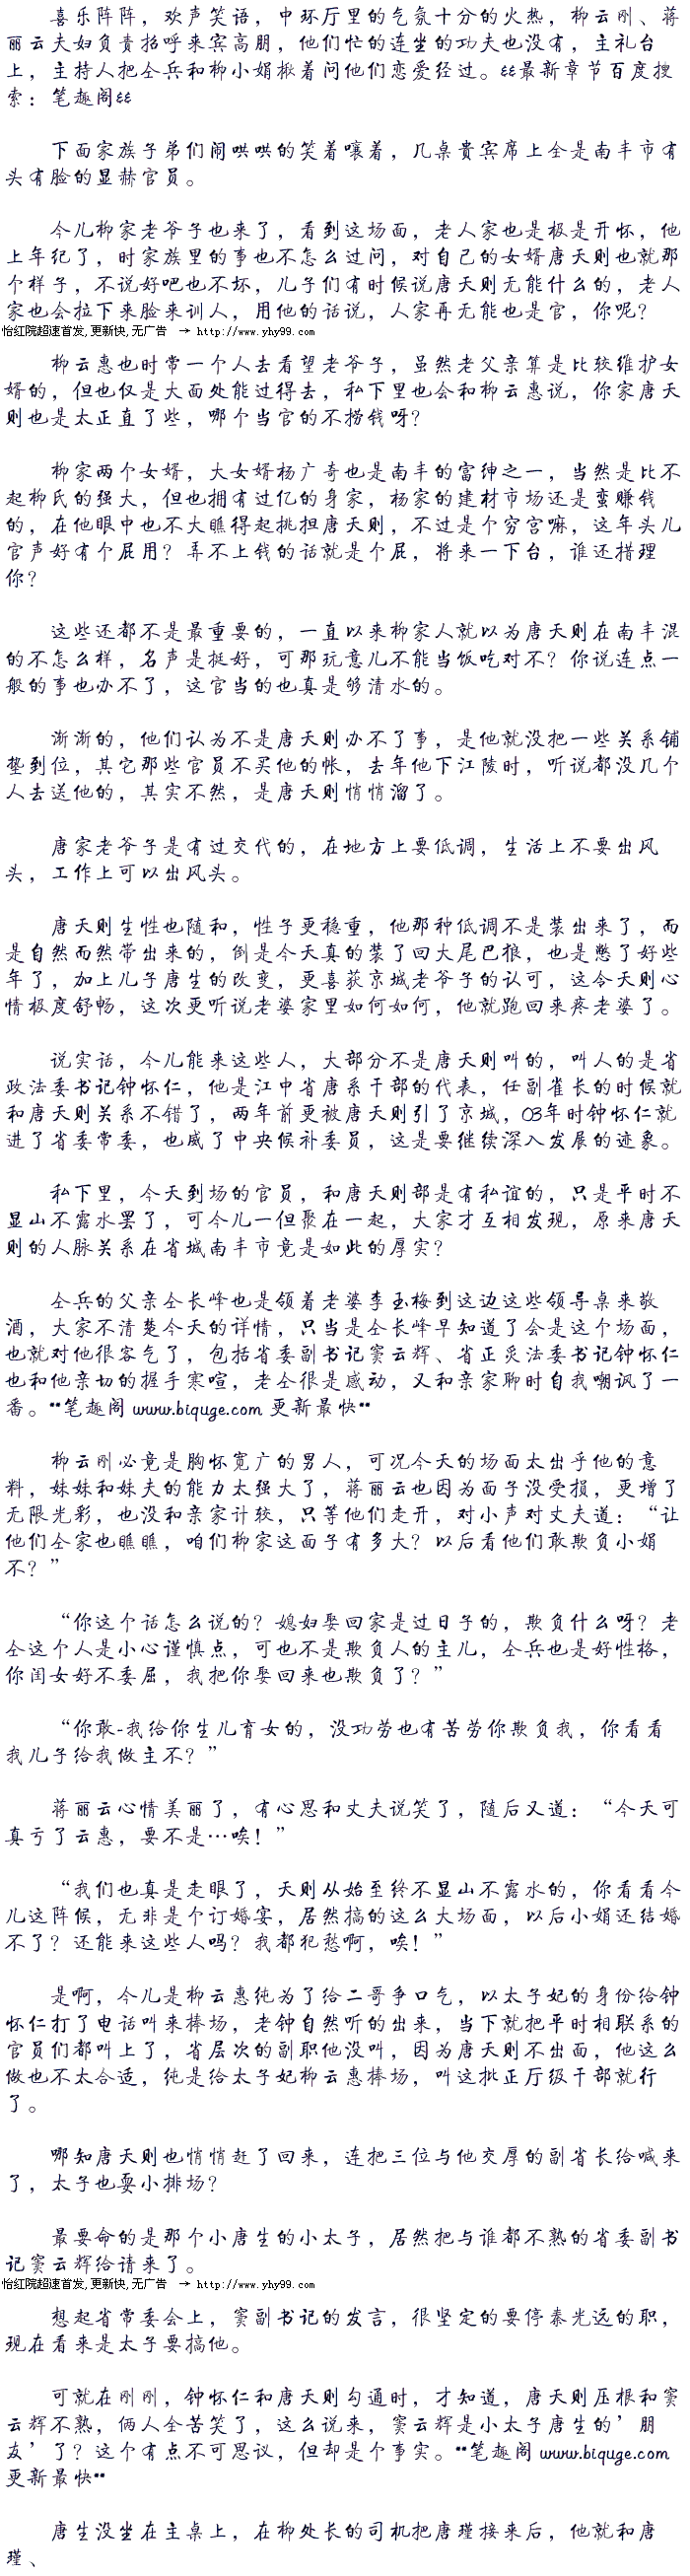 喜乐阵阵，欢声笑语，中环厅里的气氛十分的火热，柳云刚、蒋
丽云夫妇负责招呼来宾高朋，他们忙的连坐的功夫也没有，主礼台
上，主持人把仝兵和柳小娟揪着问他们恋爱经过。££最新章节百度搜
索：笔趣阁££
下面家族子弟们闹哄哄的笑着嚷着，几桌贵宾席上全是南丰市有
头有脸的显赫官员。
今儿柳家老爷子也来了，看到这场面，老人家也是极是开怀，他
上年纪了，时家族里的事也不怎么过问，对自己的女婿唐天则也就那
个样子，不说好吧也不坏，儿子们有时候说唐天则无能什么的，老人
家也会拉下来脸来训人，用他的话说，人家再无能也是官，你呢？
怡红院超速首发,更新快,无广告 → http://www.yhy99.com
柳云惠也时常一个人去看望老爷子，虽然老父亲算是比较维护女
婿的，但也仅是大面处能过得去，私下里也会和柳云惠说，你家唐天
则也是太正直了些，哪个当官的不捞钱呀？
柳家两个女婿，大女婿杨广奇也是南丰的富绅之一，当然是比不
起柳氏的强大，但也拥有过亿的身家，杨家的建材市场还是蛮赚钱
的，在他眼中也不大瞧得起挑担唐天则，不过是个穷宫嘛，这年头儿
官声好有个屁用？弄不上钱的话就是个屁，将来一下台，谁还搭理
你？
这些还都不是最重要的，一直以来柳家人就以为唐天则在南丰混
的不怎么样，名声是挺好，可那玩意儿不能当饭吃对不？你说连点一
般的事也办不了，这官当的也真是够清水的。
渐渐的，他们认为不是唐天则办不了事，是他就没把一些关系铺
垫到位，其它那些官员不买他的帐，去年他下江陵时，听说都没几个
人去送他的，其实不然，是唐天则悄悄溜了。
唐家老爷子是有过交代的，在地方上要低调，生活上不要出风
头，工作上可以出风头。
唐天则生性也随和，性子更稳重，他那种低调不是装出来了，而
是自然而然带出来的，倒是今天真的装了回大尾巴狼，也是憋了好些
年了，加上儿子唐生的改变，更喜获京城老爷子的认可，这令天则心
情极度舒畅，这次更听说老婆家里如何如何，他就跑回来疼老婆了。
说实话，今儿能来这些人，大部分不是唐天则叫的，叫人的是省
政法委书记钟怀仁，他是江中省唐系干部的代表，任副雀长的时候就
和唐天则关系不错了，两年前更被唐天则引了京城，03年时钟怀仁就
进了省委常委，也威了中央候补委员，这是要继续深入发展的迹象。
私下里，今天到场的官员，和唐天则部是有私谊的，只是平时不
显山不露水罢了，可今儿一但聚在一起，大家才互相发现，原来唐天
则的人脉关系在省城南丰市竟是如此的厚实？
仝兵的父亲仝长峰也是领着老婆李玉梅到这边这些领导桌来敬
酒，大家不清楚今天的详情，只当是仝长峰早知道了会是这个场面，
也就对他很客气了，包括省委副书记窦云辉、省正灵法委书记钟怀仁
也和他亲切的握手寒喧，老仝很是感动，又和亲家聊时自我嘲讽了一
番。**笔趣阁 www.biquge.com 更新最快**
柳云刚必竟是胸怀宽广的男人，可况今天的场面太出乎他的意
料，妹妹和妹夫的能力太强大了，蒋丽云也因为面子没受损，更增了
无限光彩，也没和亲家计较，只等他们走开，对小声对丈夫道：“让
他们仝家也瞧瞧，咱们柳家这面子有多大？以后看他们敢欺负小娟
不？”
“你这个话怎么说的？媳妇娶回家是过日子的，欺负什么呀？老
仝这个人是小心谨慎点，可也不是欺负人的主儿，仝兵也是好性格，
你闺女好不委屈，我把你娶回来也欺负了？”
“你敢-我给你生儿育女的，没功劳也有苦劳你欺负我，你看看
我儿子给我做主不？”
蒋丽云心情美丽了，有心思和丈夫说笑了，随后又道：“今天可
真亏了云惠，要不是…唉！”
“我们也真是走眼了，天则从始至终不显山不露水的，你看看今
儿这阵候，无非是个订婚宴，居然搞的这么大场面，以后小娟还结婚
不了？还能来这些人吗？我都犯愁啊，唉！”
是啊，今儿是柳云惠纯为了给二哥争口气，以太子妃的身份给钟
怀仁打了电话叫来棒场，老钟自然听的出来，当下就把平时相联系的
官员们都叫上了，省层次的副职他没叫，因为唐天则不出面，他这么
做也不太合适，纯是给太子妃柳云惠棒场，叫这批正厅级干部就行
了。
哪知唐天则也悄悄赶了回来，连把三位与他交厚的副省长给喊来
了，太子也耍小排场？
最要命的是那个小唐生的小太子，居然把与谁都不熟的省委副书
记窦云辉给请来了。
怡红院超速首发,更新快,无广告 → http://www.yhy99.com
想起省常委会上，窦副书记的发言，很坚定的要停泰光远的职，
现在看来是太子要搞他。
可就在刚刚，钟怀仁和唐天则勾通时，才知道，唐天则压根和窦
云辉不熟，俩人全苦笑了，这么说来，窦云辉是小太子唐生的’朋
友’了？这个有点不可思议，但却是个事实。**笔趣阁 www.biquge.com
更新最快**
唐生没坐在主桌上，在柳处长的司机把唐瑾接来后，他就和唐
瑾、